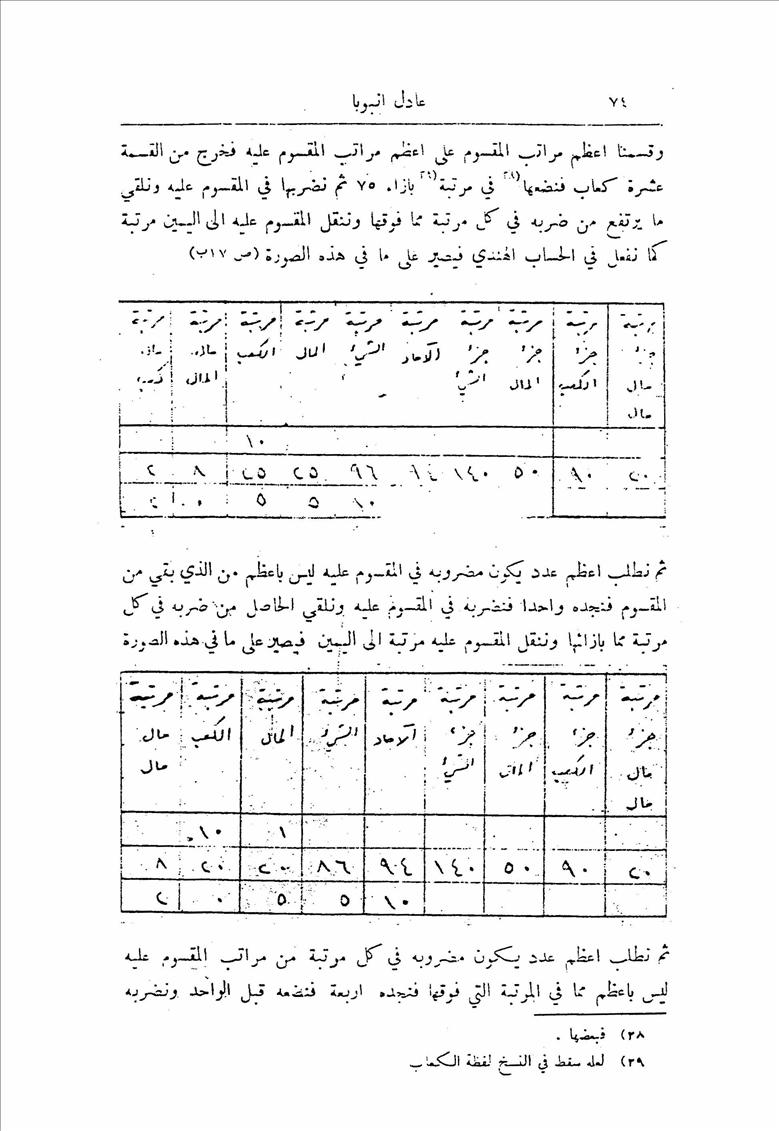 ٧٤ عادل انبوبا
وقسمنا اعظم مراتب المقسوم على اعظم مراتب المقسوم عليه فخرج من القسمة
عشرة كعاب فنضعها(٢٨ في مرتبة(٢٩ بازاء ٧٥ ثم نضربها في المقسوم عليه ونلقي
ما يرتفع من ضربه في كل مرتبة مما فوقها وننقل المقسوم عليه الى اليمين مرتبة
كما نفعل في الحساب الهندي فيصير على ما في هذه الصورة (ص ١٧ب)
مرتبة جزء مال مال | مرتبة جزء الكعب | مرتبة جزء المال | مرتبة جزء الشيء | مرتبة الآحاد | مرتبة الشيء | مرتبة المال | مرتبة الكعب | مرتبة مال المال | مرتبة مال كعب
١٠
٢٠ | ٩٠ | ٥٠ | ١٤٠ | ٩٤ | ٩٦ | ٢٥ | ٢٥ | ٨ | ٢
١٠ | ٥ | ٥ | ٠ | ٢
ثم نطلب اعظم عدد يكون مضروبه في المقسوم عليه ليس باعظم من الذي بقي من
المقسوم فنجده واحدا فنضربه في المقسوم عليه ونلقي الحاصل من ضربه في كل
مرتبة مما بازائها وننقل المقسوم عليه مرتبة الى اليمين فيصير على ما في هذه الصورة
مرتبة جزء مال مال | مرتبة جزء الكعب | مرتبة جزء المال | مرتبة جزء الشيء | مرتبة الآحاد | مرتبة الشيء | مرتبة المال | مرتبة الكعب | مرتبة مال مال
١ | ١٠
٢٠ | ٩٠ | ٥٠ | ١٤٠ | ٩٤ | ٨٦ | ٢٠ | ٢٠ | ٨
١٠ | ٥ | ٥ | ٠ | ٢
ثم نطلب اعظم عدد يكون مضروبه في كل مرتبة من مراتب المقسوم عليه
ليس باعظم مما في المرتبة التي فوقها فنجده اربعة فنضعه قبل الواحد ونضربه
٢٨) فبعضها .
٢٩) لعله سقط في النسخ لفظة الكعاب